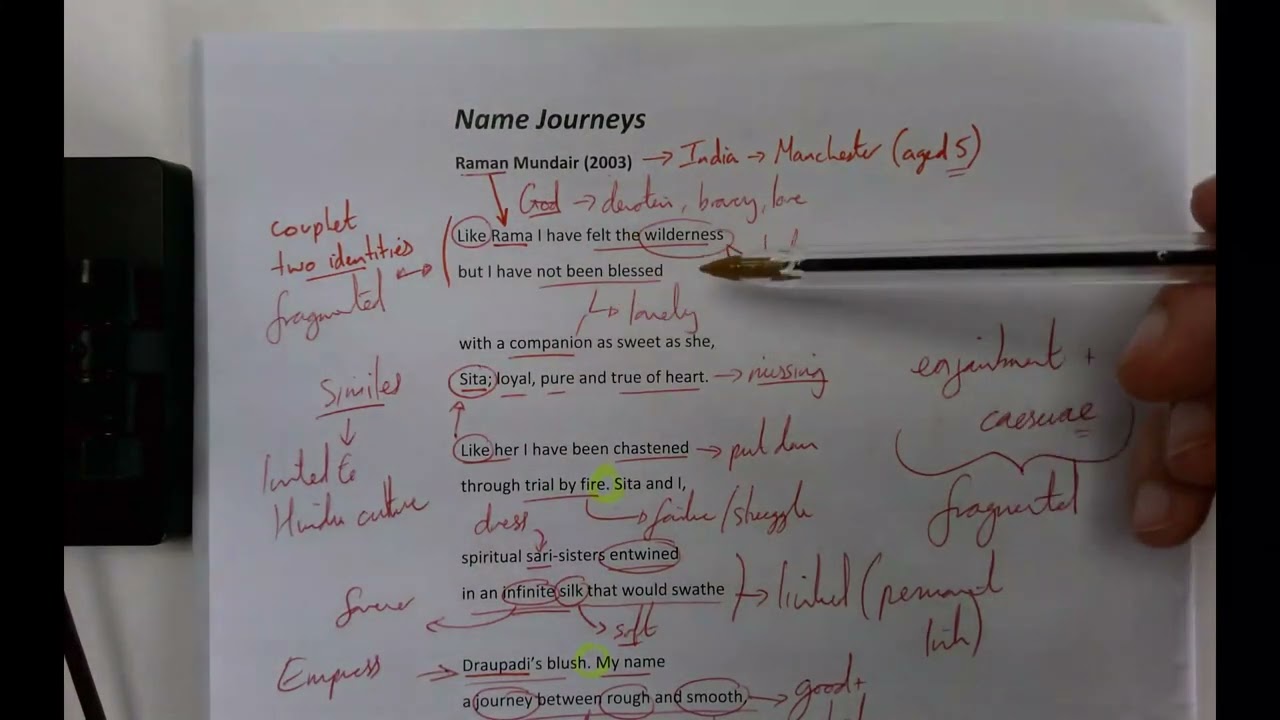 Name Journeys
Raman Mundair (2003) → India → Manchester (aged 5)
God → devotion, bravery, love
couplet
two identities
fragmented
Like Rama I have felt the wilderness
but I have not been blessed
lonely
with a companion as sweet as she,
Sita; loyal, pure and true of heart. → missing
enjambment +
caesurae
fragmented
Similes
Linked to
Hindu culture
Like her I have been chastened → put down
through trial by fire. Sita and I,
dress
failure/struggle
spiritual sari-sisters entwined
in an infinite silk that would swathe
linked (permanent
link)
forever
soft
Empress
Draupadi's blush. My name
a journey between rough and smooth, → good +